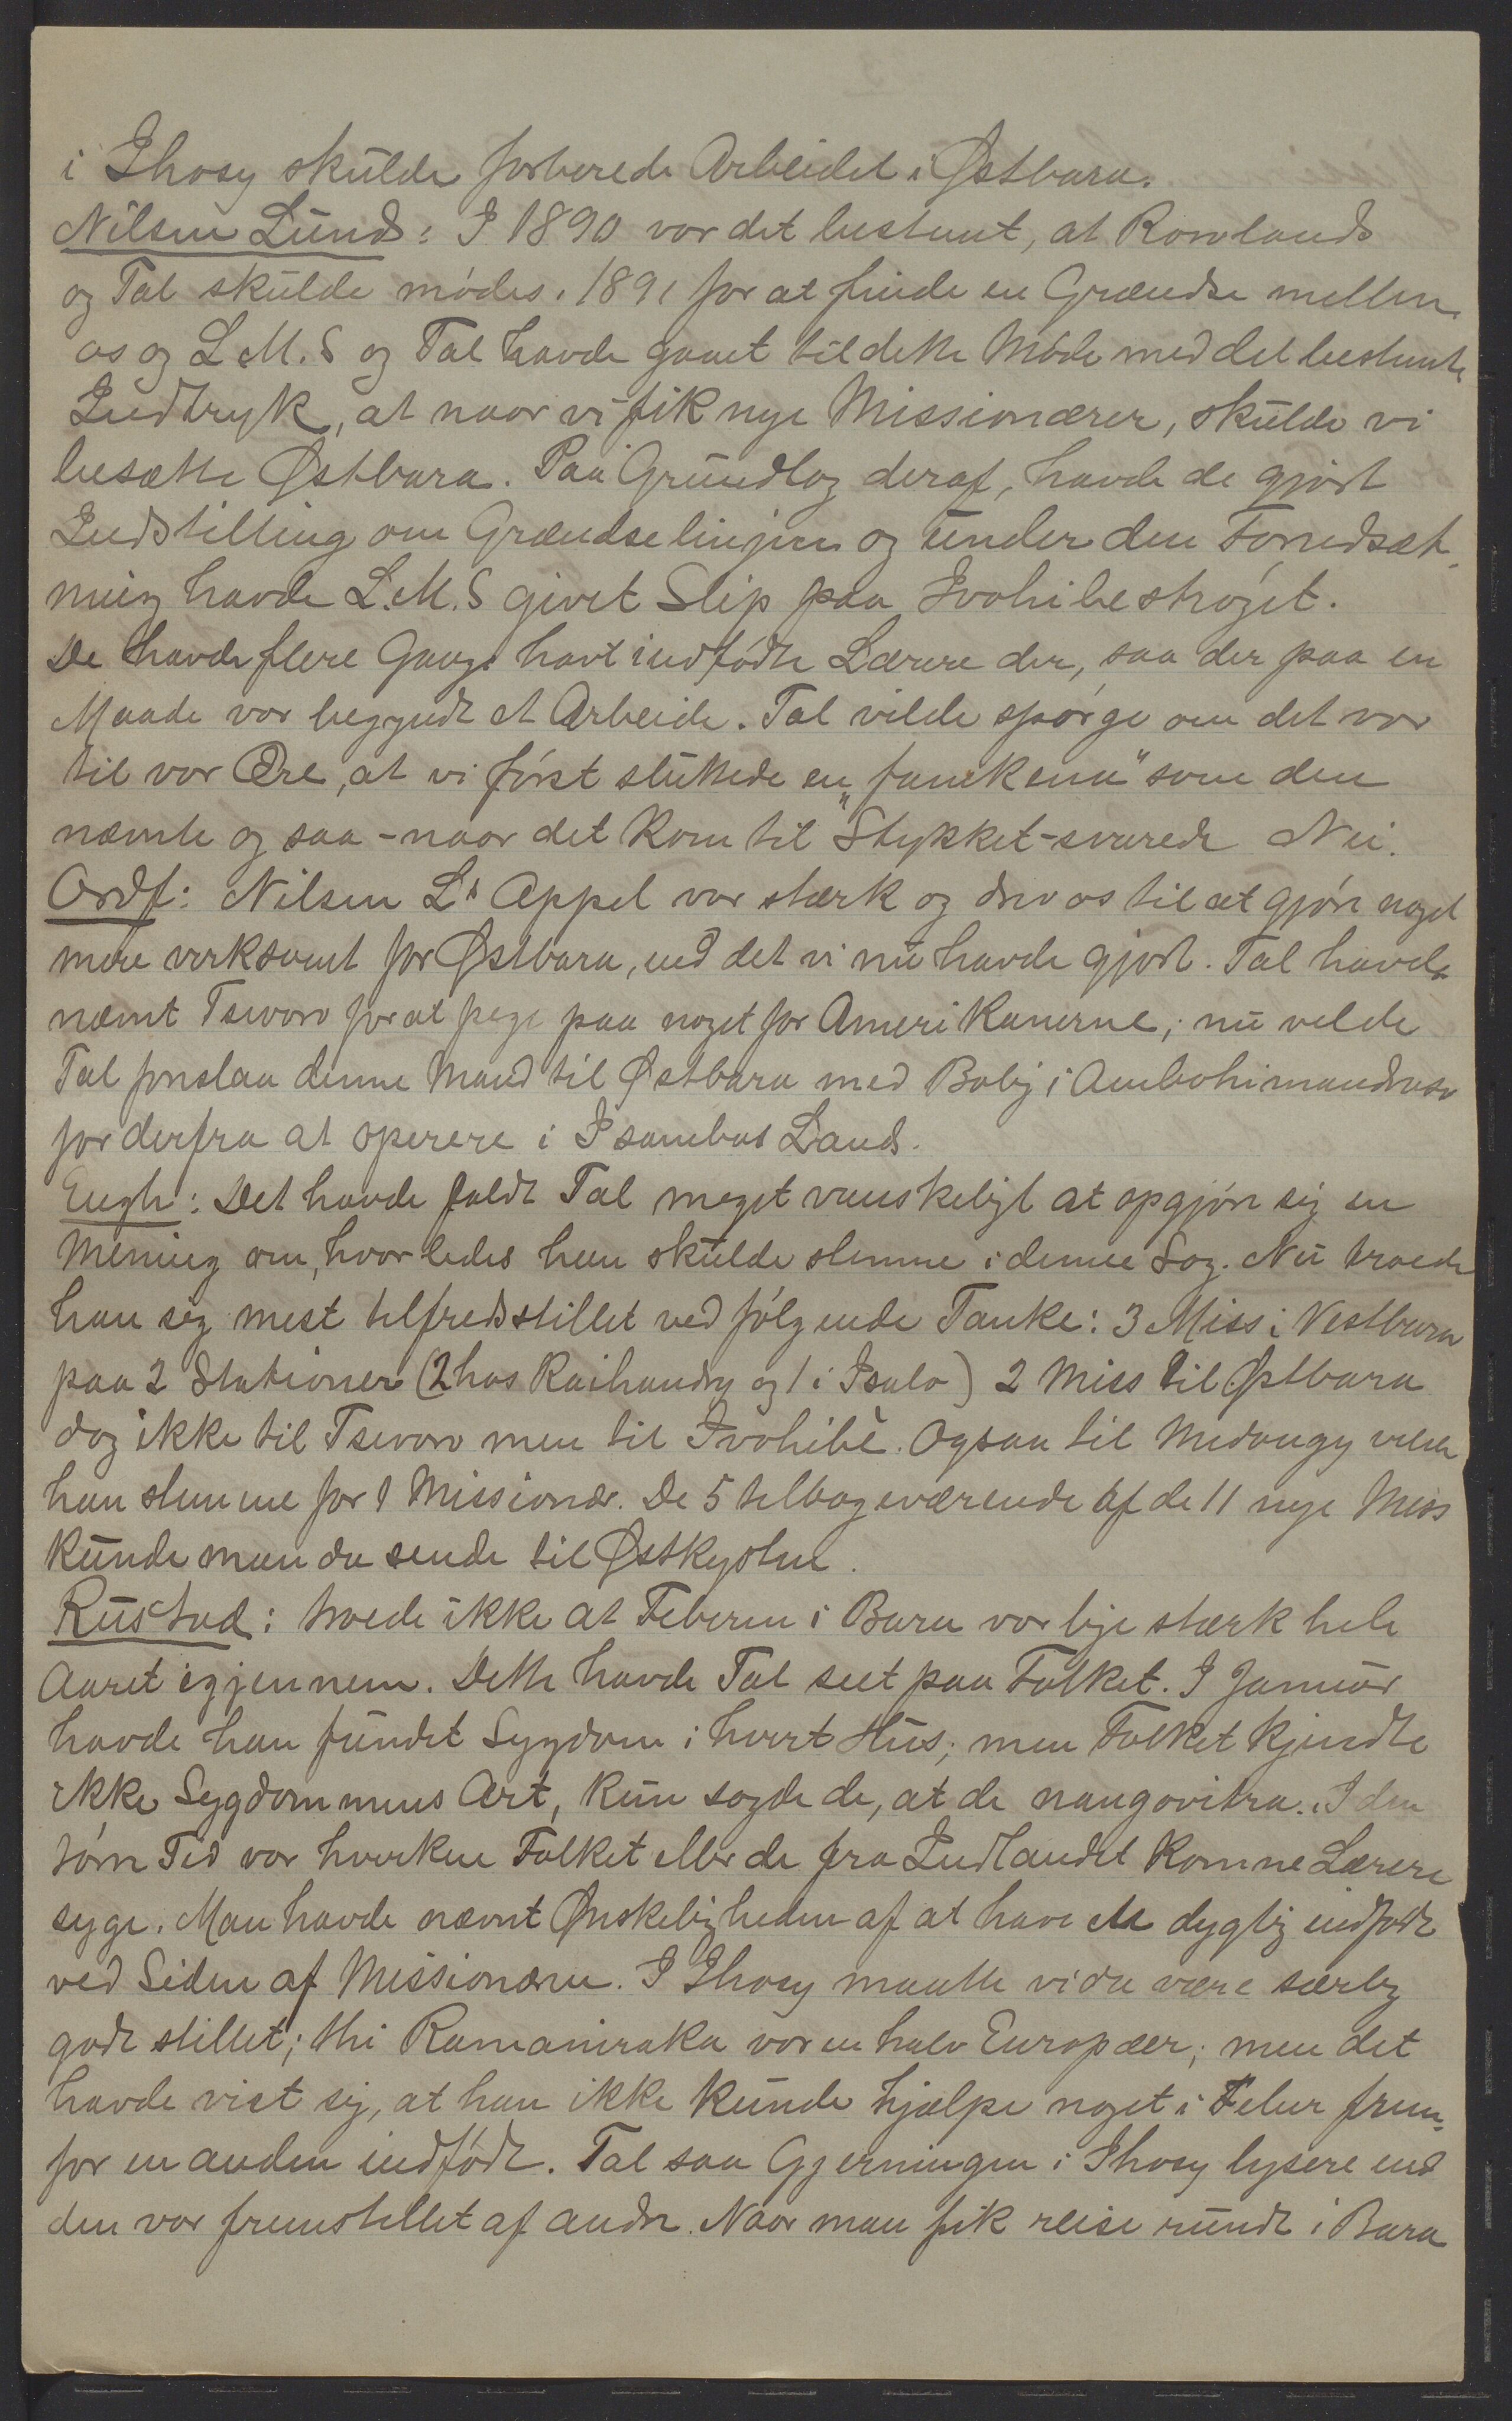 i Ihosy skulde forberede Arbeidet i Østbara.
Nilsen Lund: I 1890 var det bestemt, at Rowlands
og Tal skulde mødes i 1891 for at finde en Grændse mellem
os og L.M.S og Tal havde gaaet til dette Møde med det bestemte
Indtryk, at naar vi fik nye Missionærer, skulde vi
besætte Østbara. Paa Grundlag deraf, havde de gjort
Indstilling om Grændselinjen og under den Forudsæt-
ning havde L.M.S givet Slip paa Ivohibestrøget.
De havde flere Gange havt indfødte Lærere der, saa der paa en
Maade var begyndt et Arbeide. Tal vilde spørge om det var
til vor Ære, at vi først sluttede en „fanekena" som den
nævnte og saa - naar det kom til Stykket - svarede Nei.
Ordf: Nilsen Ls Appel var stærk og drev os til at gjøre noget
mere virksomt for Østbara, end det vi nu havde gjort. Tal havde
nævnt Tsivoro for at pege paa noget for Amerikanerne; nu vilde
Tal foreslaa denne Mand til Østbara med Bolig i Ambohimandroso
for derfra at operere i Isambos Land.
Engh: Det havde faldt Tal meget vanskeligt at opgjøre sig en
Mening om, hvorledes han skulde stemme i denne Sag. Nu troede
han sig mest tilfredsstillet ved følgende Tanke: 3 Miss i Vestbara
paa 2 Stationer (2 hos Raihandry og 1 i Isalo) 2 Miss til Østbara
dog ikke til Tsivoro men til Ivohibè. Ogsaa til Midongy vilde
han stemme for 1 Missionær. De 5 tilbageværende af de 11 nye Miss
kunde man da sende til Østkysten.
Rustad: troede ikke at Feberen i Bara var lige stærk hele
Aaret igjennem. Dette havde Tal seet paa Folket. I Januar
havde han fundet Sygdom i hvert Hus; men Folket kjendte
ikke Sygdommens Art, kun sagde de, at de nangovitra. I den
tørre Tid var hverken Folket eller de fra Indlandet komne Lærere
syge. Man havde nævnt Ønskeligheden af at have en dygtig indfødt
ved Siden af Missionæren. I Ihosy maatte vi da være særlig
godt stillet; thi Ramaniraka var en halv Europæer; men det
havde vist sig, at han ikke kunde hjælpe noget i Feber frem-
for en anden indfødt. Tal saa Gjerningen i Ihosy lysere end
den var fremstillet af andre. Naar man fik reise rundt i Bara